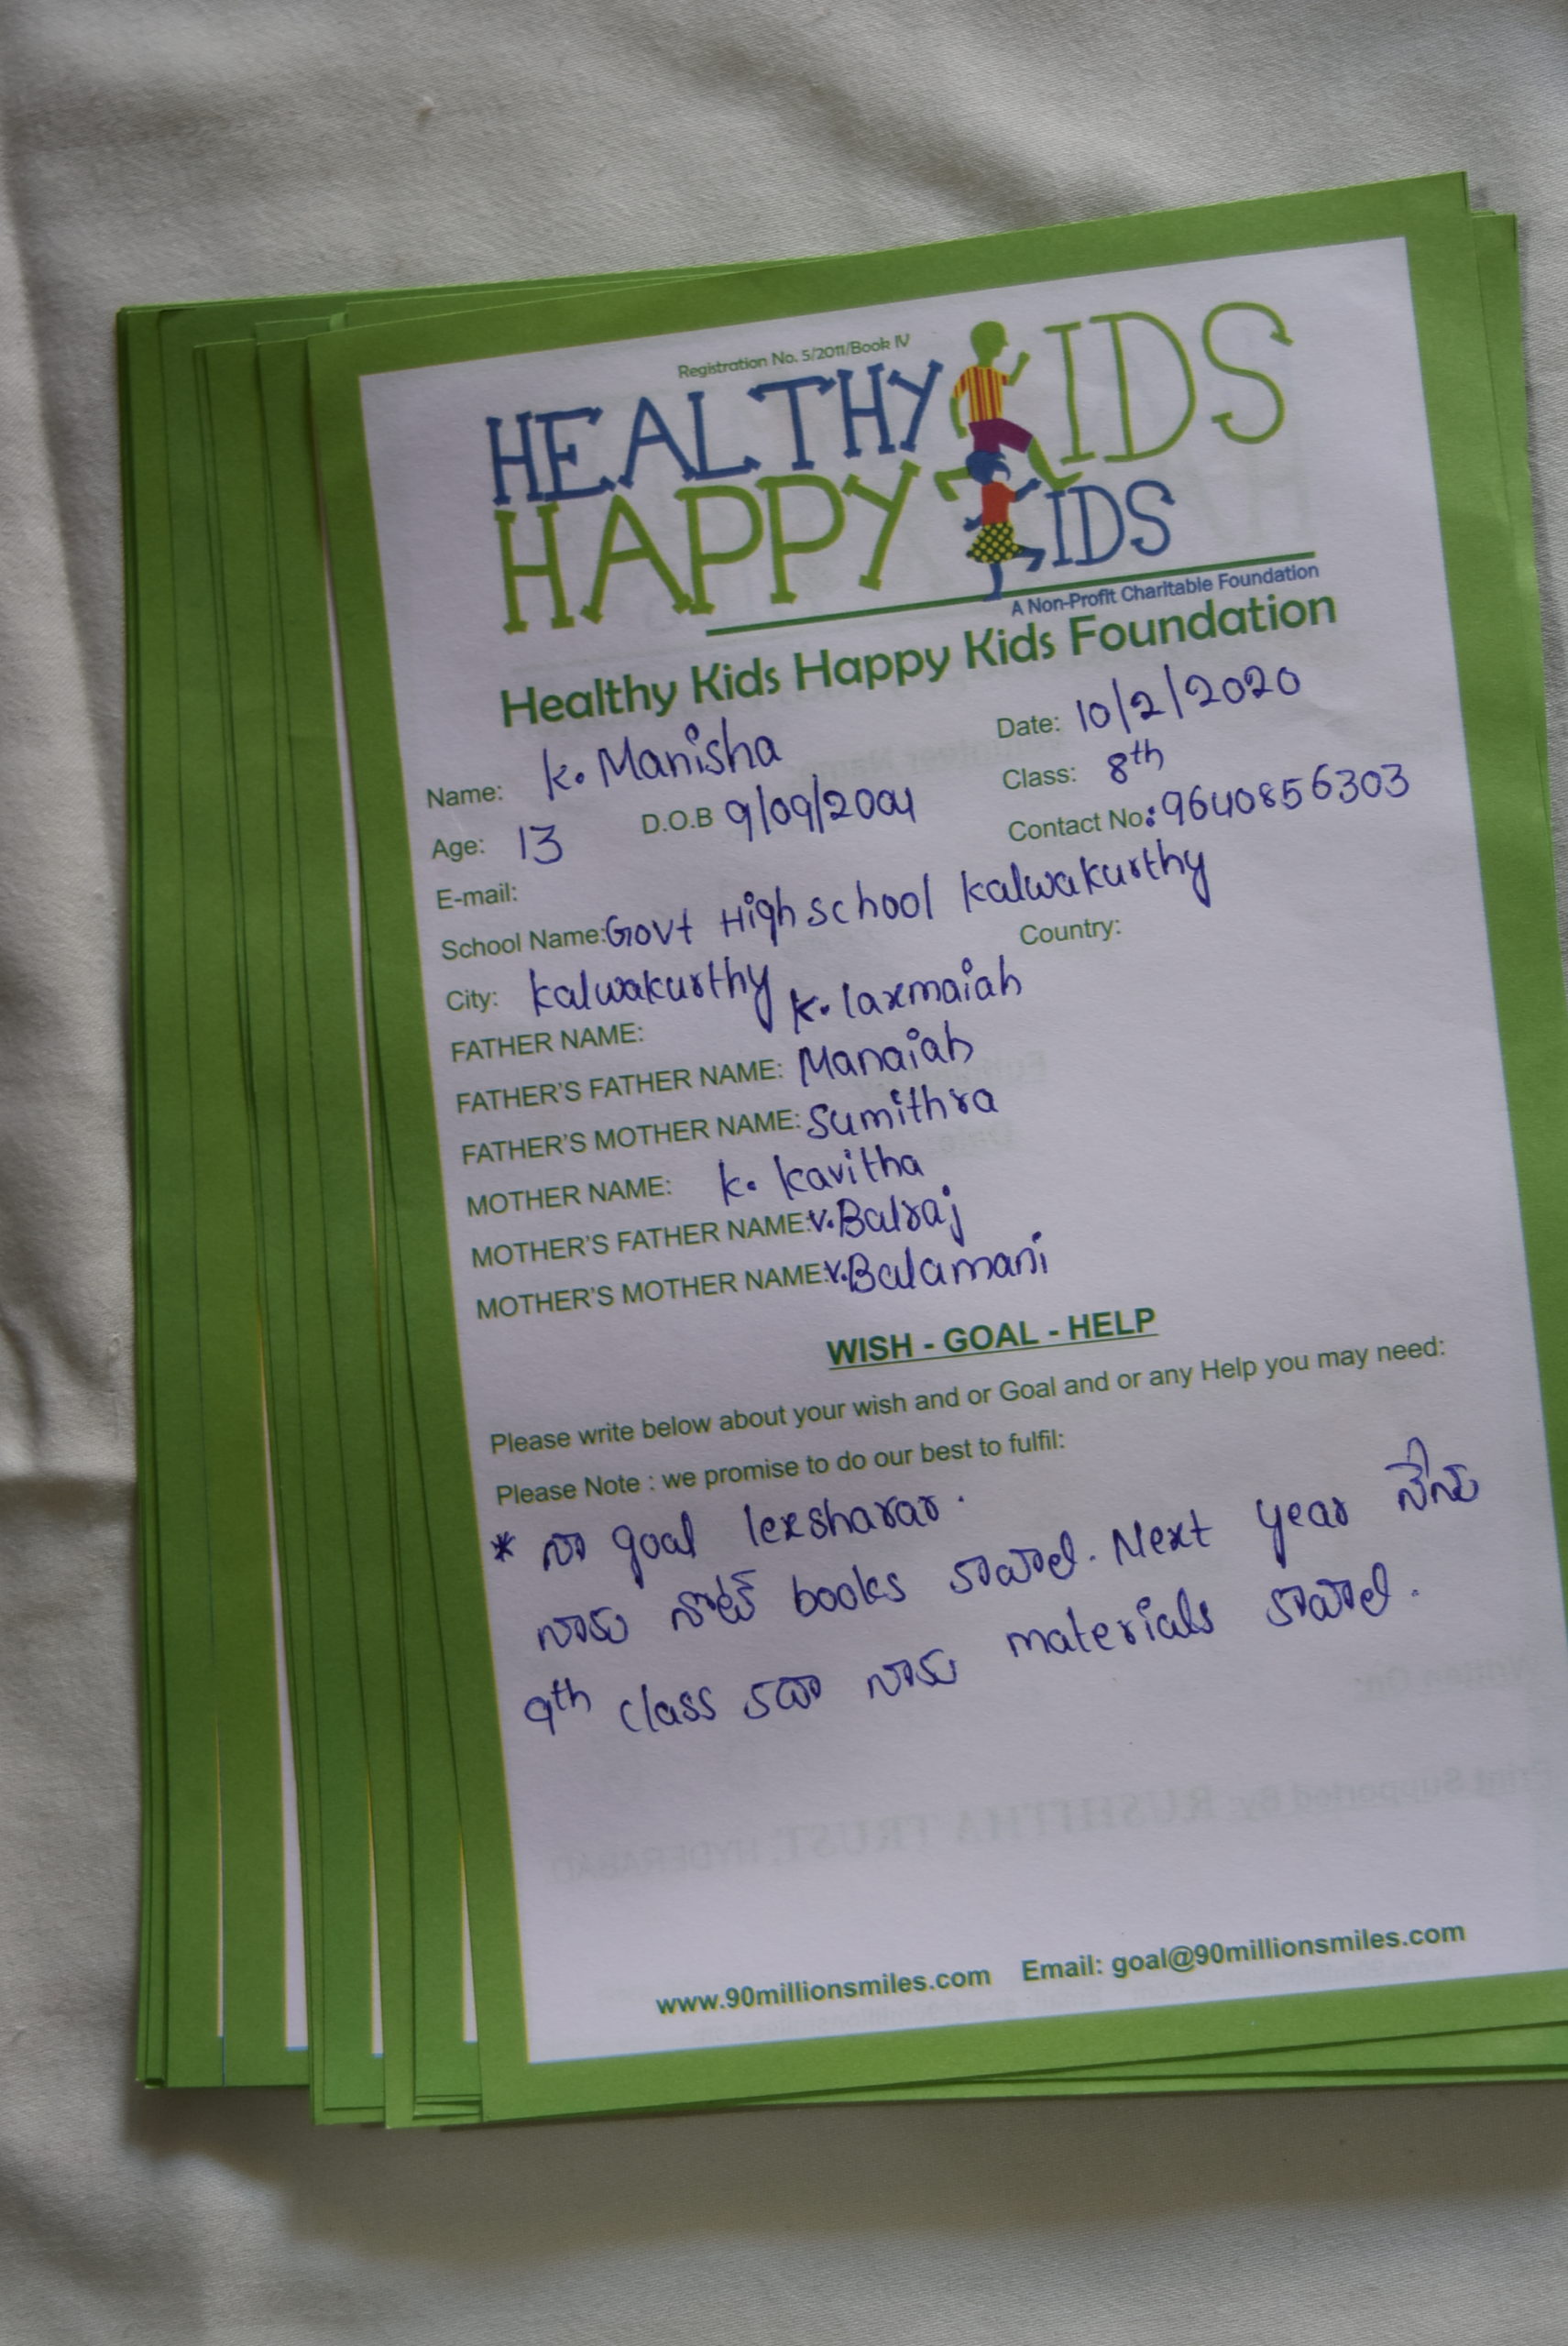 Registration No. 5/2011/Book IV
HEALTHY KIDS
HAPPY KIDS
A Non-Profit Charitable Foundation
Healthy Kids Happy Kids Foundation
Name: K. Manisha Date: 10/2/2020
Age: 13 D.O.B 9/09/2004 Class: 8th
E-mail: Contact No: 9640856303
School Name: Govt High school kalwakurthy
City: kalwakurthy Country:
FATHER NAME: K. laxmaiah
FATHER'S FATHER NAME: Manaiah
FATHER'S MOTHER NAME: Sumithra
MOTHER NAME: K. Kavitha
MOTHER'S FATHER NAME: V. Balraj
MOTHER'S MOTHER NAME: V. Balamani
WISH - GOAL - HELP
Please write below about your wish and or Goal and or any Help you may need:
Please Note : we promise to do our best to fulfil:
* నా goal lexsharar.
నాకు నోట్ books కావాలి. Next year నేను
9th class కదా నాకు materials కావాలి.
www.90millionsmiles.com Email: goal@90millionsmiles.com